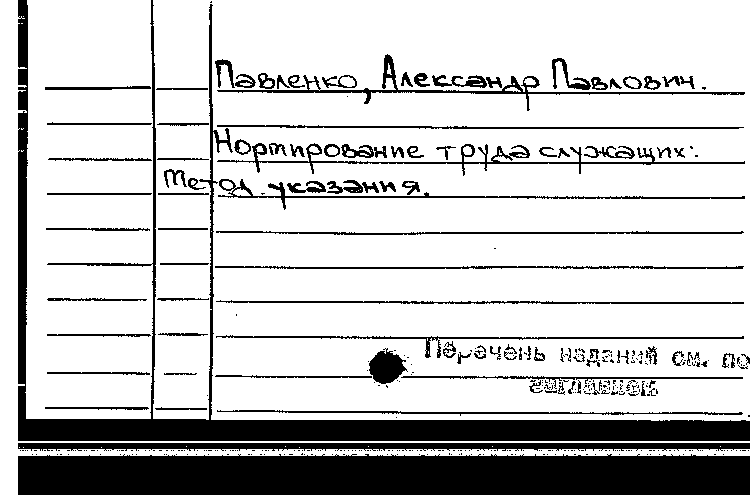 Павленко, Александр Павлович.
Нормирование труда служащих:
Метод. указания.
Перечень изданий см. по
заглавием